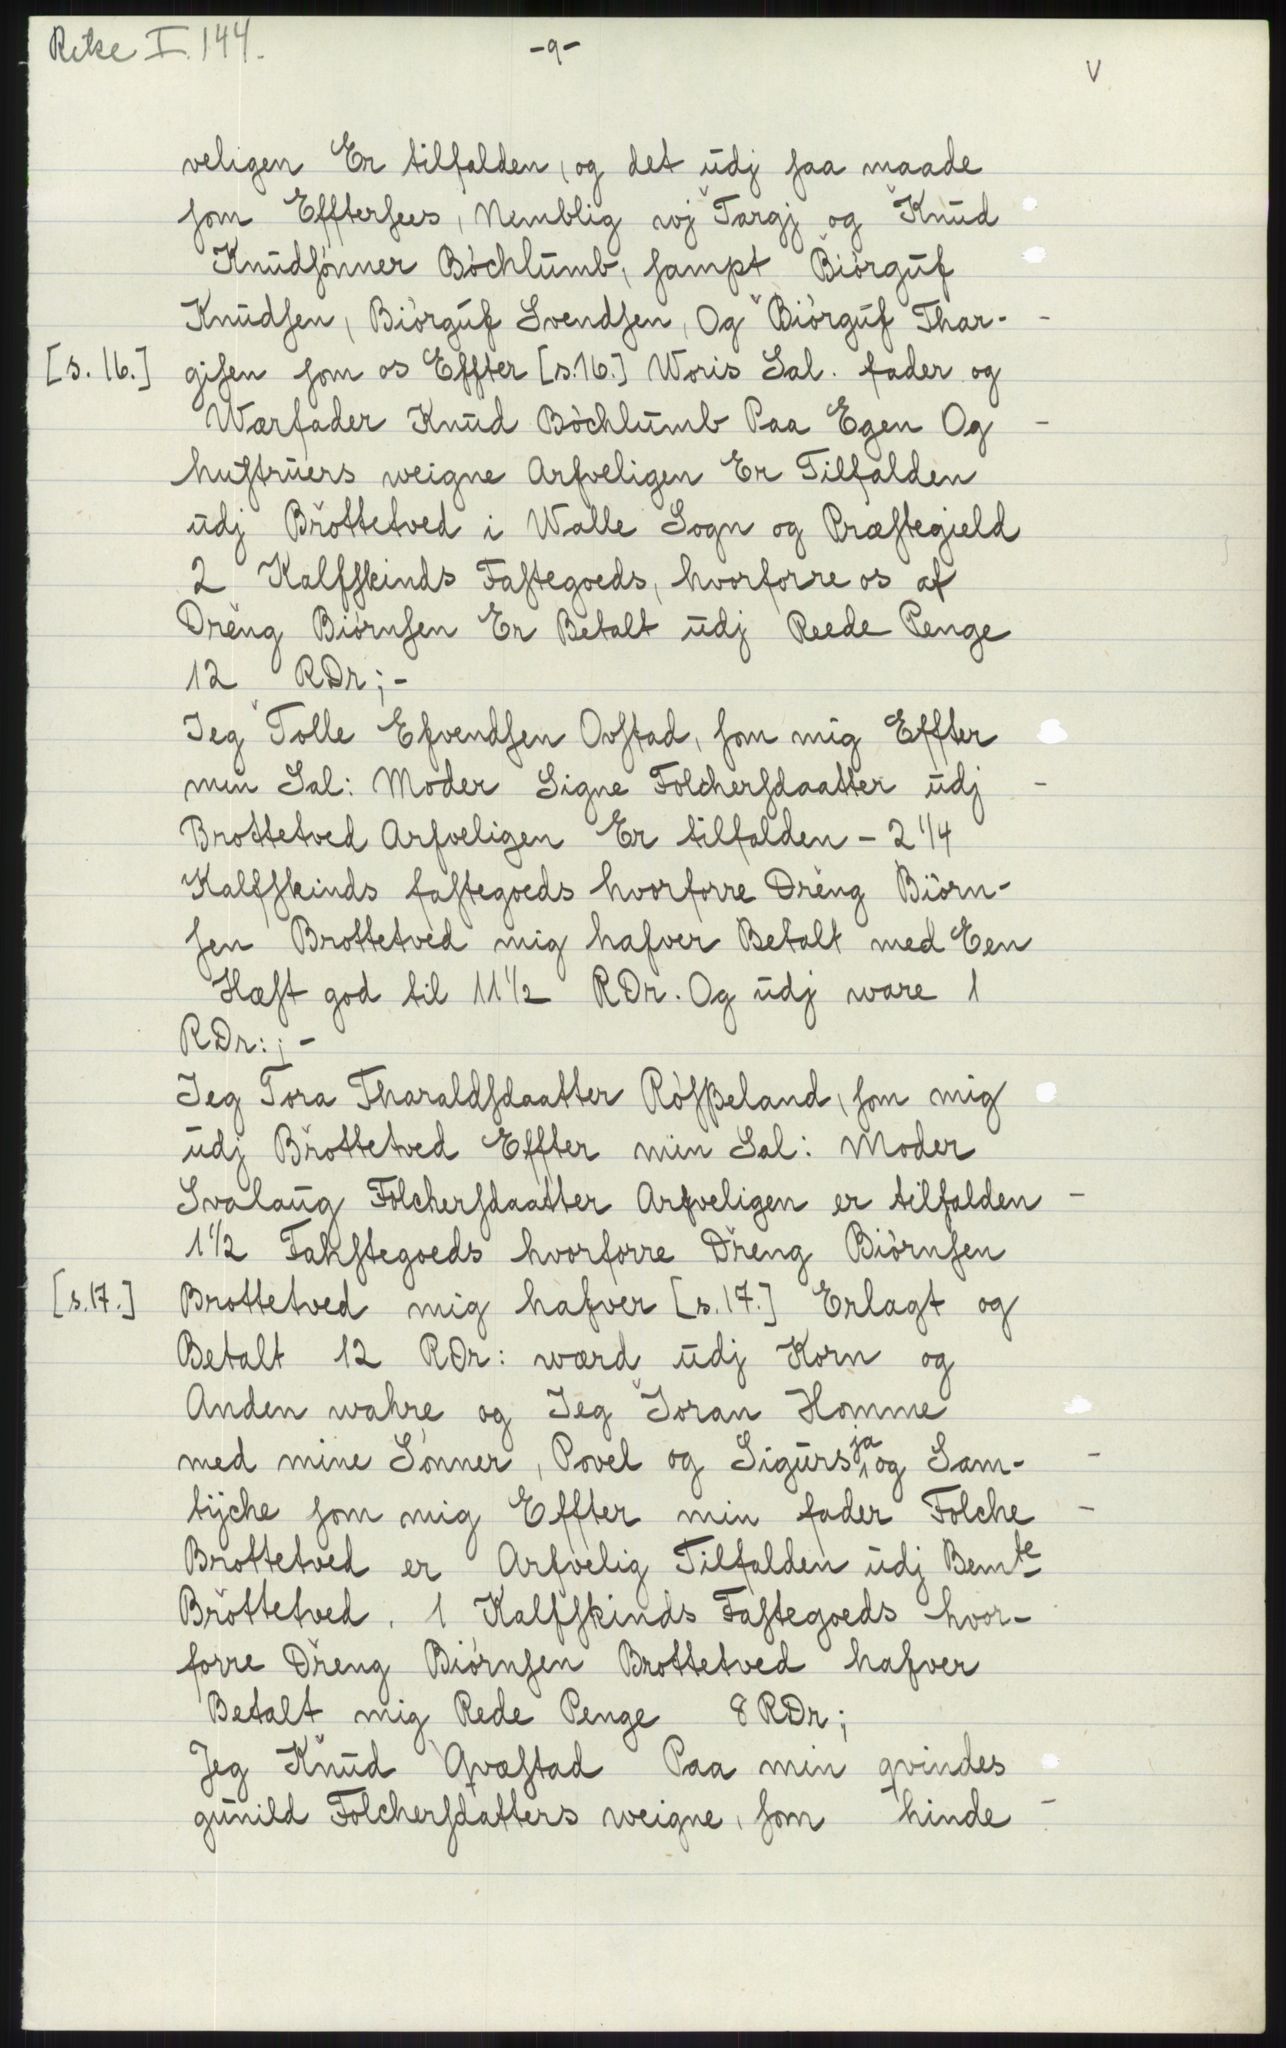 Retke I. 144.
-9-
V
veligen Er tilfalden, og det udj saa maade
som Effterfees, Nemblig wj Targj og Knud
Knudsønner Bøchlumb, sampt Biørguf
Knudsen, Biørguf Svendsen, Og Biørguf Thar-
[s. 16.] gisen som os Effter [s.16.] Woris Sal. fader og
Wærfader Knud Bøchlumb Paa Egen Og
hustruers weigne Arfveligen Er Tilfalden
udj Brottetved i Walle Sogn og Præstegield
2 Kalfskinds Fastegoeds, hvorforre os af
Dreng Biørnsen Er Betalt udj Reede Penge
12 RDr; -
Jeg Tolle Efvendsen Ovstad, som mig Effter
min Sal: Moder Signe Folchersdaatter udj
Brottetved Arfveligen Er tilfalden - 2 1/4
Kalfskinds fastegoeds hvorforre Dreng Biörn-
sen Brottetved mig hafver Betalt med Een
Hæst god til 11 1/2 RDr. Og udj ware 1
RDr:; -
Jeg Tora Tharaldsdaatter Røsßeland, som mig
udj Brottetved Effter min Sal: Moder
Svalaug Folchersdaatter Arfveligen er tilfalden
1 1/2 Fahstegoeds hvorforre Dreng Biørnsen
[s.17.] Brottetved mig hafver [s.17.] Erlagt og
Betalt 12 RDr: wærd udj Korn og
Anden wahre og Jeg Joran Homme
med mine Sønner, Povel og Sigurs ja og Sam-
tyche som mig Effter min fader Folche
Brottetved er Arfvelig Tilfalden udj Bemte
Brottetved. 1 Kalfskinds Fastegoeds hvor-
forre Dreng Biørnsen Brottetved hafver
Betalt mig Rede Penge 8 RDr;
Jeg Knud Qvæstad Paa min qvindes
gunild Folchersdatters weigne, som hinde